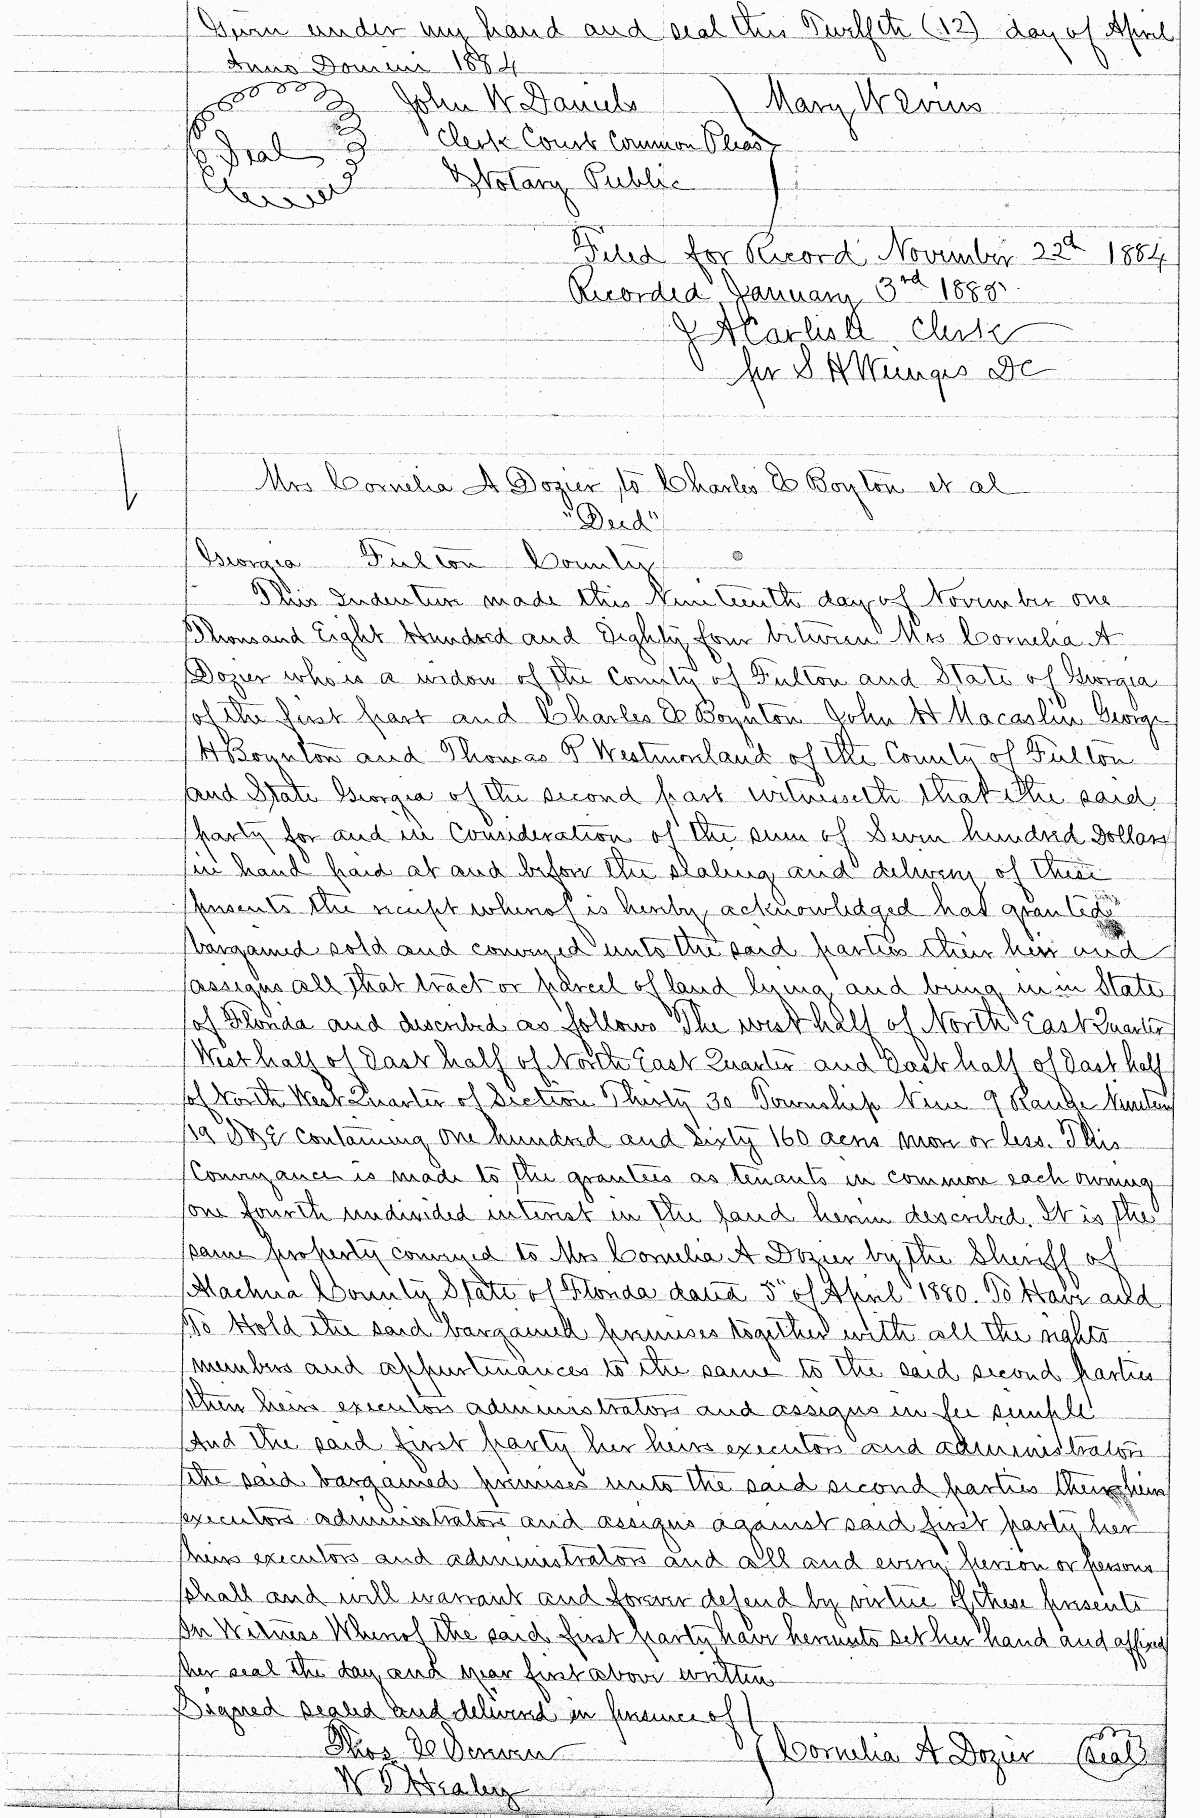 Given under my hand and seal this Twelfth (12) day of April
Anno Domini 1884
John W Daniels ) Mary W Evins
Seal
Clerk Court Common Pleas
& Notary Public
Filed for Record November 22d 1884
Recorded January 3rd 1885
J A Carlisle Clerk
per S H Wienges DC
Mrs Cornelia A Dozier to Charles E Boyton et al
"Deed"
Georgia Fulton County
This Indenture made this Nineteenth day of November one
Thousand Eight Hundred and Eighty four between Mrs Cornelia A
Dozier who is a widow of the County of Fulton and State of Georgia
of the first part and Charles E Boynton John H Macaslin George
H Boynton and Thomas P Westmoreland of the County of Fulton
and State Georgia of the second part witnesseth that the said
party for and in Consideration of the sum of Seven hundred Dollars
in hand paid at and before the sealing and delivery of these
presents the receipt whereof is hereby acknowledged has granted
bargained sold and conveyed unto the said parties their heirs and
assigns all that tract or parcel of land lying and being in in State
of Florida and described as follows The west half of North East Quarter
West half of East half of North East Quarter and East half of East half
of North West Quarter of Section Thirty 30 Township Nine 9 Range Nineteen
19 S & E containing one hundred and sixty 160 acres more or less. This
Conveyance is made to the grantees as tenants in common each owning
one fourth undivided interest in the land herein described. It is the
same property conveyed to Mrs Cornelia A Dozier by the Sheriff of
Alachua County State of Florida dated 5" of April 1880. To Have and
To Hold the said bargained premises together with all the rights
members and appurtenances to the same to the said second parties
their heirs executors administrators and assigns in fee simple
And the said first party her heirs executors and administrators
the said bargained premises unto the said second parties their heirs
executors administrators and assigns against said first party her
heirs executors and administrators and all and every person or persons
shall and will warrant and forever defend by virtue of these presents
In Witness Whereof the said first party have hereunto set her hand and affixed
her seal the day and year first above written
Signed sealed and delivered in presence of
Thos
Cornelia A Dozier (Seal)
W Healey